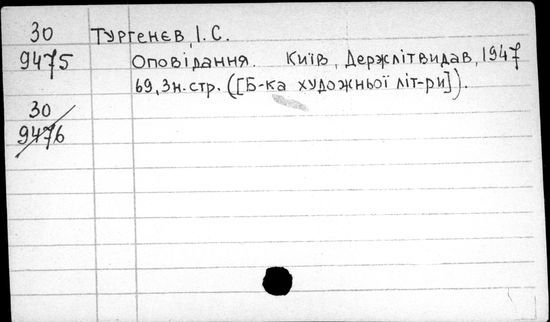 30 Тургенєв, І.С.
9475 Оповідання. Київ, Держлітвидав, 1947
69, 3н.стр. ([Б-ка художньої літ-ри]).
30
9476